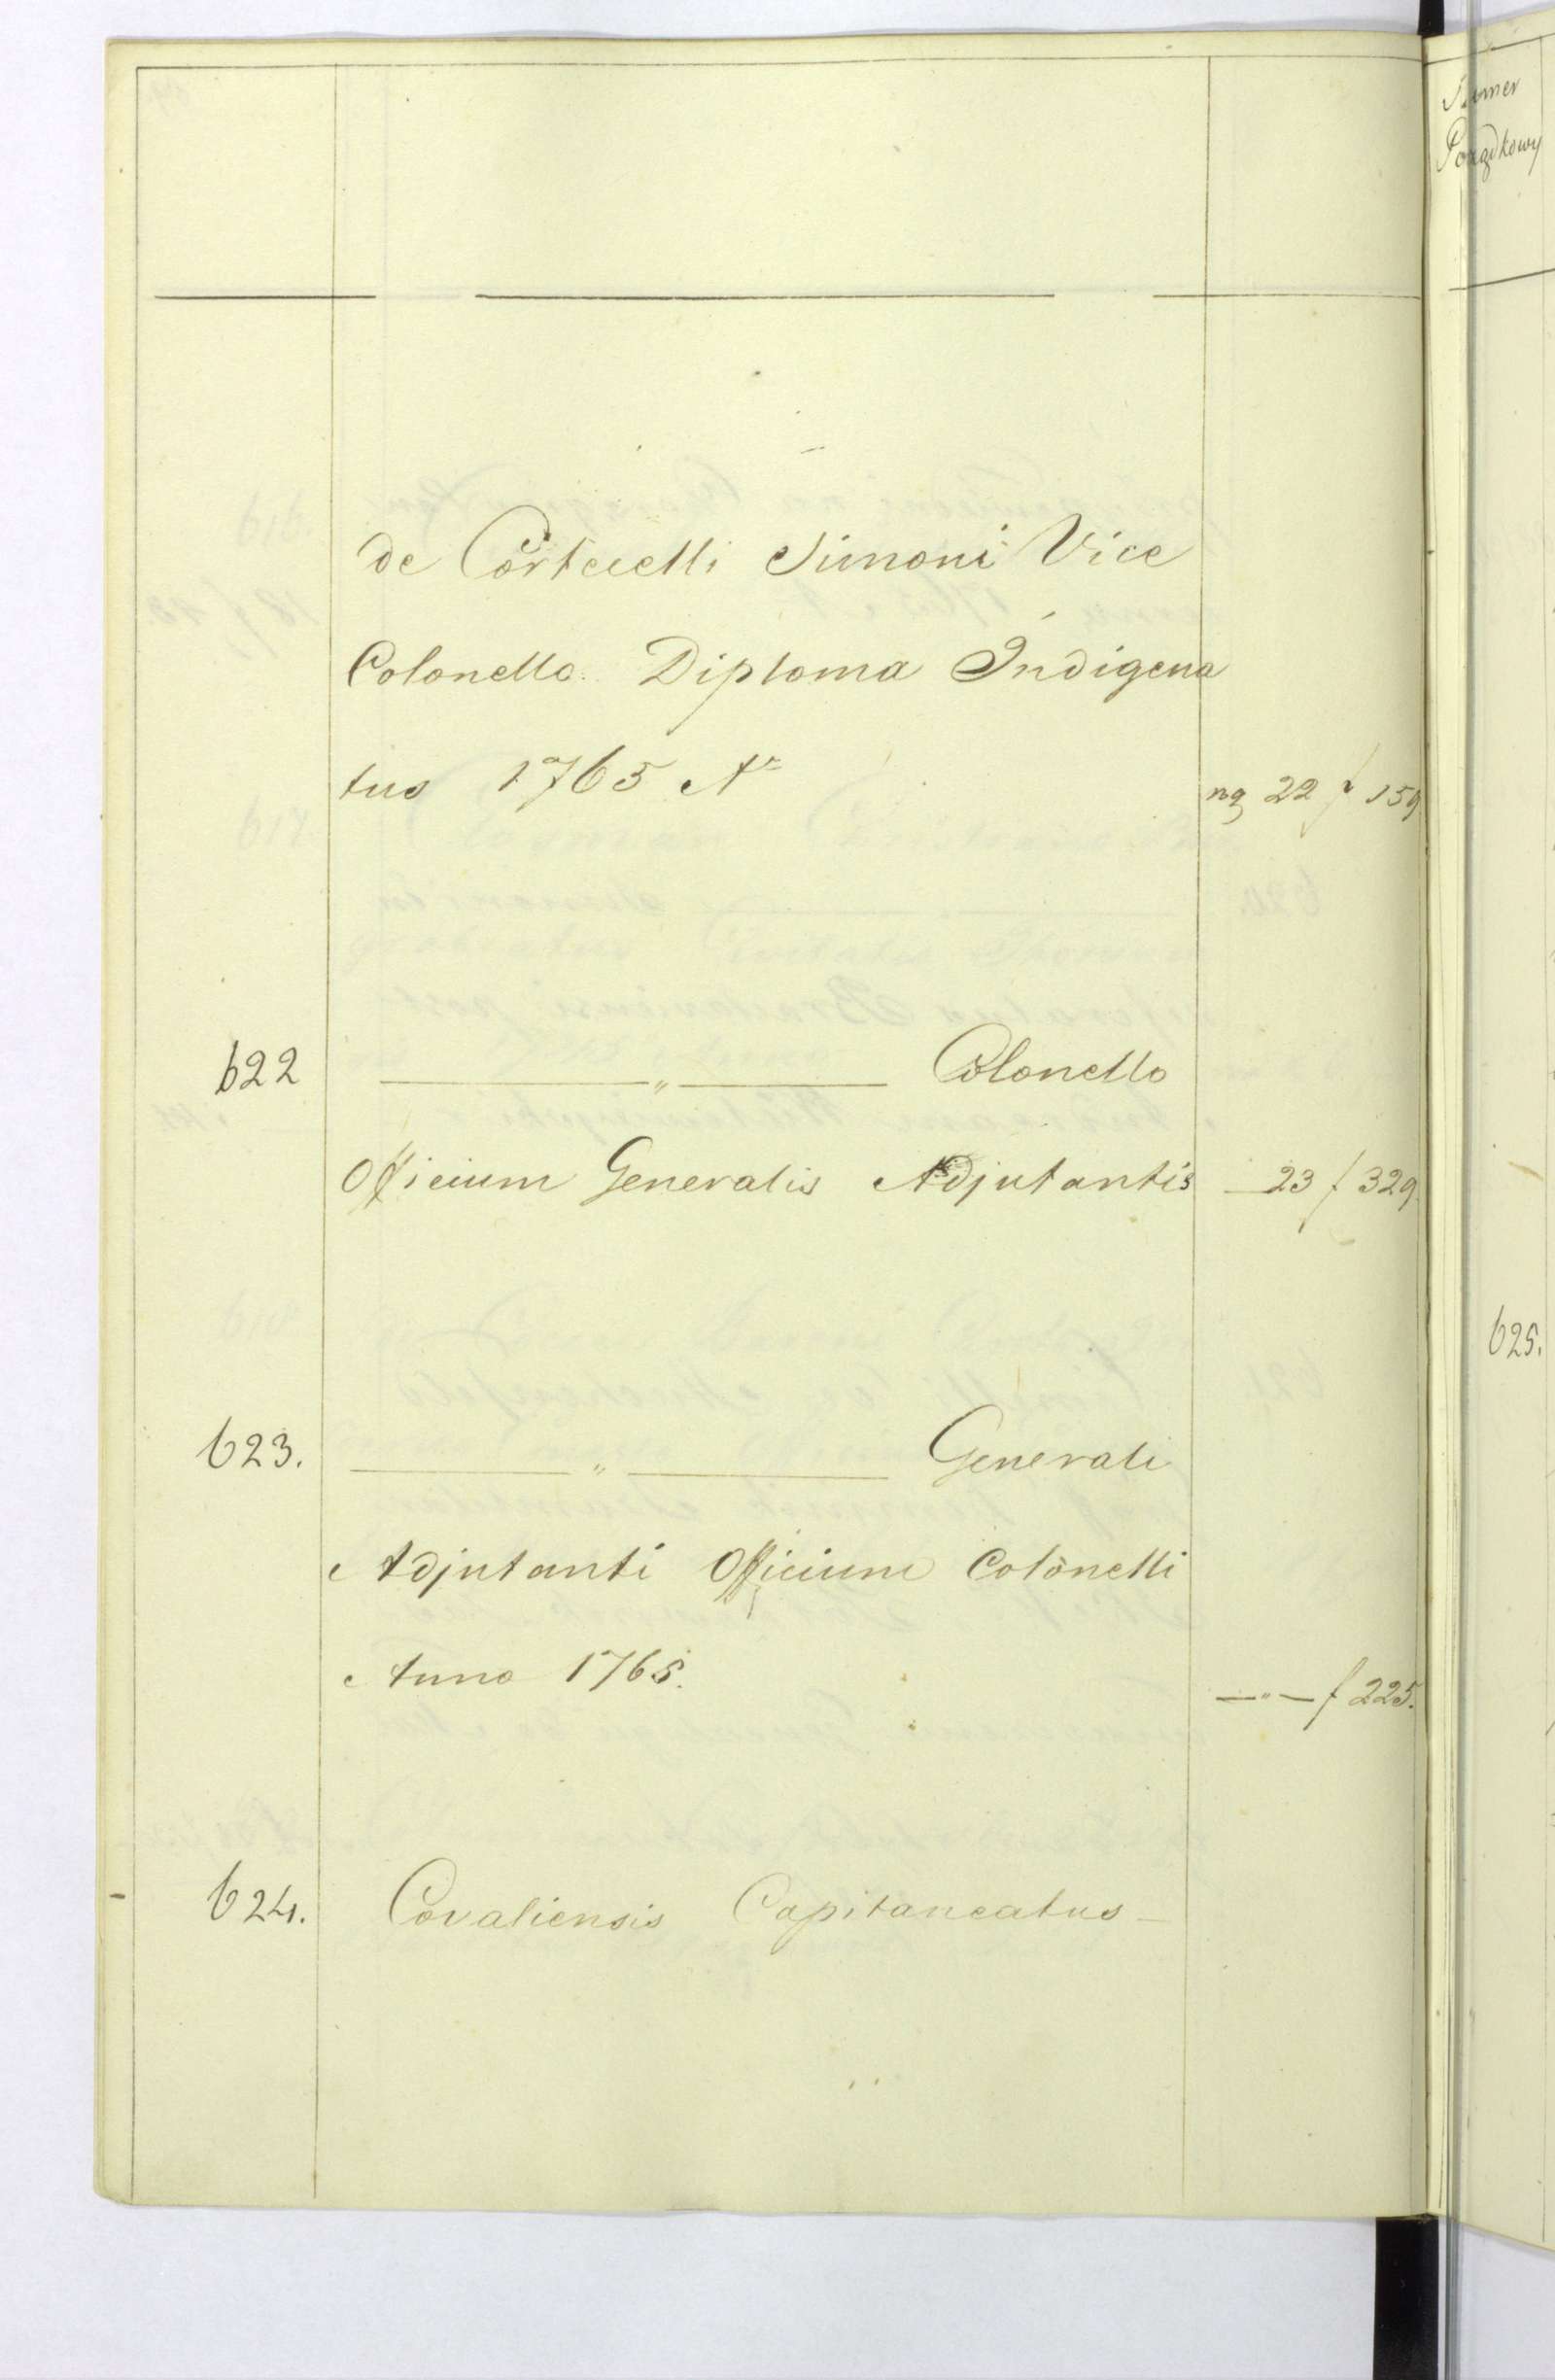 de Corticelli Simoni Vice
Colonello. Diploma Indigena
tus 1765 A°
ng 22 f 159
622 —"— Colonello
Officium Generalis Adjutantis — 23 f 329.
623. —"— Generali
Adjutanti Officium Colonelli
Anno 1765.
—"— f 225.
624. Covaliensis Capitaneatus —
Numer
Porządkowy
625.